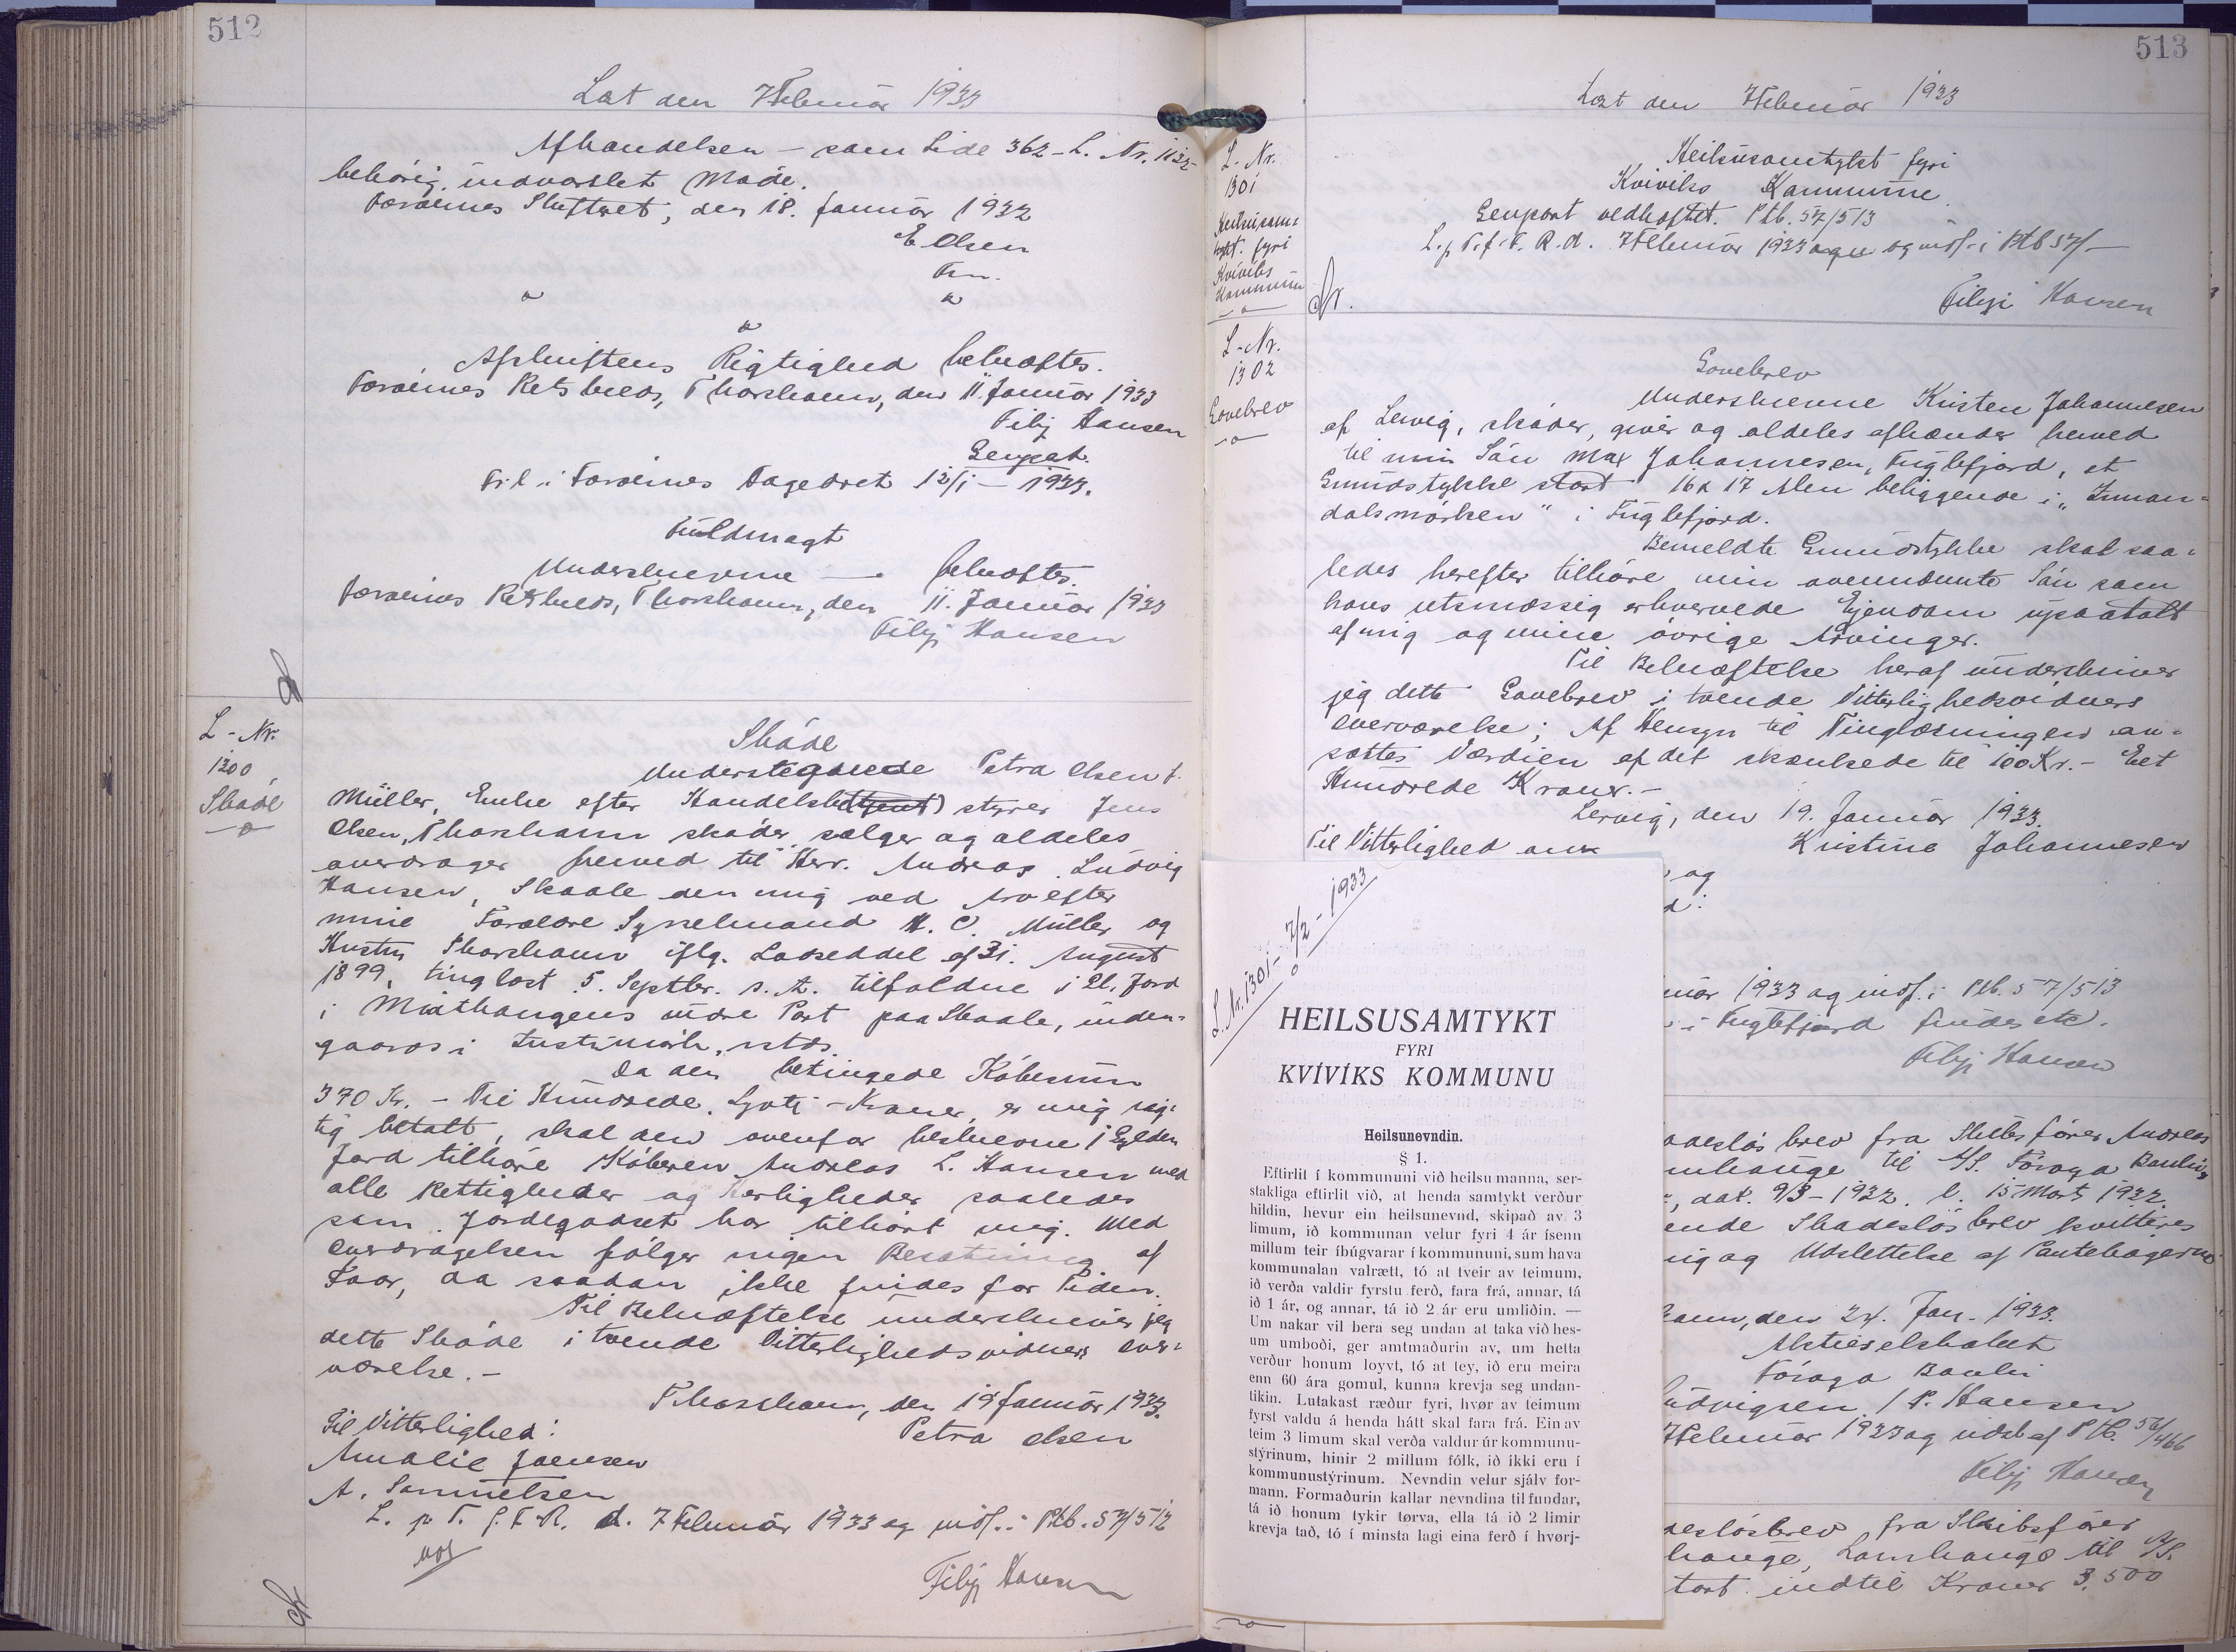 512
Læst den 7 Februar 1933
Afhandelsen – som Side 362 – L. Nr. 1132
behørig indvarslet Møde.
Færøernes Skifteret, den 18. Januar 1932
E. Olsen
Fm.
Afskriftens Rigtighed bekræftes.
Færøernes Retskreds, Thorshavn, den 11. Januar 1933
Filip Hansen
Genpart.
Til i Færøernes Dagedret 12/1 – 1933.
Fuldmagt
Underskrevne — bekræftes.
Færøernes Retskreds, Thorshavn, den 11. Januar 1933
Filip Hansen
L - Nr.
1300
Skøde
Skøde
Undertegnede Petra Olsen f.
Müller, Enke efter Handelsbestyrer Jens
Olsen, Thorshavn skøder, sælger og aldeles
overdrager herved til Herr. Andreas Ludvig
Hansen, Skaale den mig ved Arv efter
mine Forældre Sysselmand H. C. Müller og
Hustru Thorshavn iflg. Lodseddel af 31. August
1899, tinglæst 5. Septbr. s. A. tilfaldne 1 Gl. Jord
i Miðhangens indre Part paa Skaale, inden-
gaards i
Da den betingede Købesum
370 Kr. – Tre Hundrede Syvti – Kroner, er mig rig-
tig betalt, skal den ovenfor beskrevne 1 Gylden
Jord tilhøre Køberen Andreas L. Hansen med
alle Rettigheder og Herligheder saaledes
som Jordegodset har tilhørt mig. Med
Overdragelsen følger ingen Besætning af
Faar, da saadan ikke findes for Tiden.
Til Bekræftelse underskriver jeg
dette Skøde i tvende Vitterlighedsvidners Over-
værelse. –
Thorshavn, den 19 Januar 1933.
Petra Olsen
Til Vitterlighed:
Amalie Joensen
A. Samuelsen
L. p. T. f. F. R. d. 7 Februar 1933 og indf. i Ptb. 57/512
Filip Hansen
513
Læst den 7 Februar 1933
L - Nr.
1301
Heilsusam-
tykt fyri
Kvívíks
Kommunu
Heilsusamtykt fyri
Kvívíks Kommunu.
Genpart vedhæftet. Ptb. 57/513
L. p. T. f. F. R. d. 7 Februar 1933 og indf. i Ptb 57/–
Filip Hansen
L - Nr.
1302
Gavebrev
Gavebrev
Underskrevne Kristen Johannesen
af Lervig, skøder, giver og aldeles afhænder herved
til min Søn Max Johannesen, Fuglefjord, et
Grundstykke stort 16 x 17 Alen beliggende i „Innan-
dalsmørken“ i Fuglefjord.
Bemeldte Grundstykke skal saa-
ledes herefter tilhøre min ovennævnte Søn som
hans retsmæssig erhvervede Ejendom upaatalt
af mig og mine øvrige Arvinger.
Til Bekræftelse heraf underskriver
jeg dette Gavebrev i tvende Vitterlighedsvidners
Overværelse; Af Hensyn til Tinglæsningen an-
sættes Værdien af det skænkede til 100 Kr. – Eet
Hundrede Kroner. –
Lervig, den 19. Januar 1933.
Kristina Johannesen
Til Vitterlighed
og
uar 1933 og indf. i Ptb. 57/513
i Fuglefjord findes etc.
Filip Hansen
adesløsbrev fra Skibsfører Andreas
mhauge til A/S. Føroya Banki
dat. 9/3 – 1932. l. 15 Marts 1932
ende Skadesløsbrev kvitteres
og Udslettelse af Pantebøgerne
havn, den 24. Jan. 1933.
Aktieselskabet
Føroya Banki
udvigsen / P. Hansen
7 Februar 1933 og udsl. af Ptb. 56/466
Filip Hansen
desløsbrev fra Skibsfører
hauge, Lamhauge til A/S.
stort indtil Kroner 3,500
L. Nr. 1301 – 7/2 – 1933
HEILSUSAMTYKT
FYRI
KVÍVÍKS KOMMUNU
Heilsunevndin.
§ 1.
Eftirlit í kommununi við heilsu manna, ser-
stakliga eftirlit við, at henda samtykt verður
hildin, hevur ein heilsunevnd, skipað av 3
limum, ið kommunan velur fyri 4 ár ísenn
millum teir íbúgvarar í kommununi, sum hava
kommunalan valrætt, tó at tveir av teimum,
ið verða valdir fyrstu ferð, fara frá, annar, tá
ið 1 ár, og annar, tá ið 2 ár eru umliðin. —
Um nakar vil bera seg undan at taka við hes-
um umboði, ger amtmaðurin av, um hetta
verður honum loyvt, tó at tey, ið eru meira
enn 60 ára gomul, kunna krevja seg undan-
tikin. Lutakast ræður fyri, hvør av teimum
fyrst valdu á henda hátt skal fara frá. Ein av
teim 3 limum skal verða valdur úr kommunu-
stýrinum, hinir 2 millum fólk, ið ikki eru í
kommunustýrinum. Nevndin velur sjálv for-
mann. Formaðurin kallar nevndina til fundar,
tá ið honum tykir tørva, ella tá ið 2 limir
krevja tað, tó í minsta lagi eina ferð í hvørj-